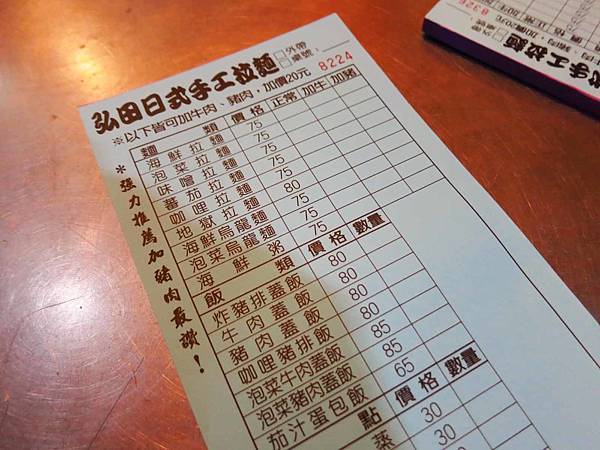 弘田日式手工拉麵
□外帶
□桌號：
8224
※以下皆可加牛肉、豬肉，加價20元
麵類 價格 正常 加牛 加豬
海鮮拉麵 75
泡菜拉麵 75
味噌拉麵 75
蕃茄拉麵 75
咖哩拉麵 80
地獄拉麵 75
海鮮烏龍麵 75
泡菜烏龍麵 75
海鮮粥 75
飯類 價格 數量
炸豬排蓋飯 80
牛肉蓋飯 80
豬肉蓋飯 80
咖哩豬排飯 80
泡菜牛肉蓋飯 85
泡菜豬肉蓋飯 85
茄汁蛋包飯 65
點 價格 數量
蒸 30
30
*強力推薦加豬肉最讚！